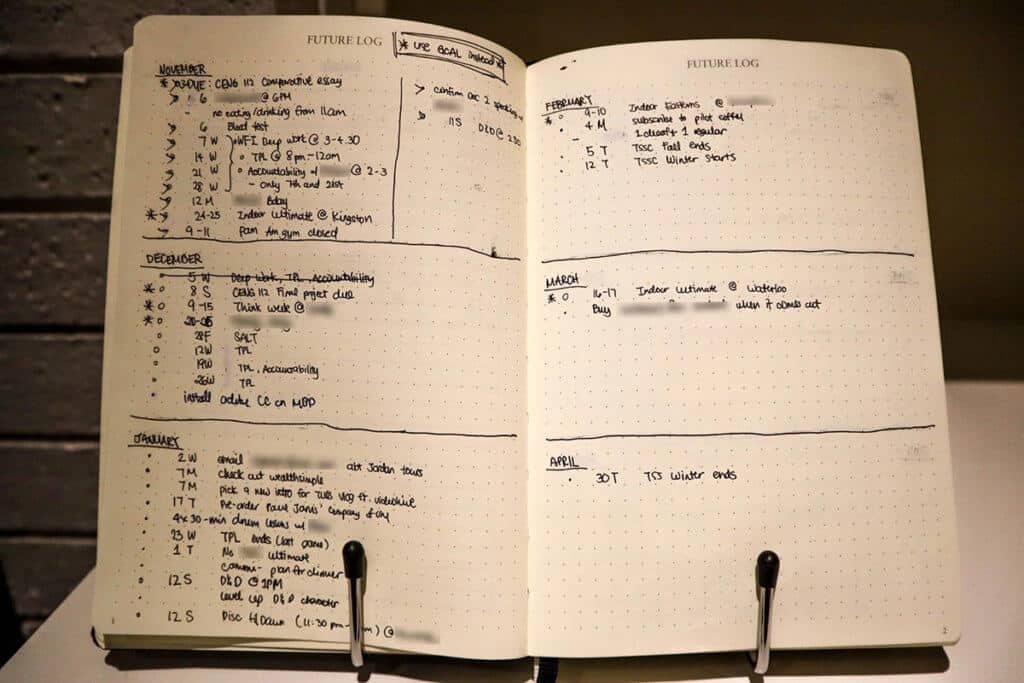 FUTURE LOG
* USE GCAL instead *
NOVEMBER
* > 03 DUE: CENG 112 Comparative essay
> 6 @ 6PM
- no eating/drinking from 11am
> 6 Blood test
> 7 W WFI Deep Work @ 3-4.30
> 14 W ○ TPL @ 8pm-12am
> 21 W ○ Accountability w/ @ 2-3
> 28 W - only 7th and 21st
> 12 M Bday
* > 24-25 Indoor Ultimate @ Kingston
> 9-11 Pam Am gym closed
> confirm
> 11 S D&D @ 2:30
DECEMBER
5 W Deep Work, TPL, Accountability
* ○ 8 S CENG 112 Final project due
* ○ 9-15 Think week @
* ○
○ 28F SALT
○ 12W TPL
○ 19W TPL, Accountability
○ 26W TPL
• install adobe CC on MBP
JANUARY
• 2 W email abt Jordan tours
• 7 M check out wealthsimple
• 7 M pick a new intro for Tues vlog ft. videohive
• 17 T Pre-order Paul Jarvis' Company of One
• 4x 30-min drum lessons w/
• 23 W TPL ends (last game)
• 1 T No Ultimate
• commi- plan for dinner
○ 12 S D&D @ 2PM
• Level up D&D character
○ 12 S Disc H/Dawn (11:30 pm- am) @
1
FUTURE LOG
FEBRUARY
* ○ 9-10 Indoor Easterns @
• 4 M subscribe to pilot coffee
- 1 decaf + 1 regular
• 5 T TSSC Fall ends
• 12 T TSSC Winter starts
MARCH
* ○ 16-17 Indoor Ultimate @ Waterloo
• Buy when it comes out
APRIL
• 30 T TSS Winter ends
2